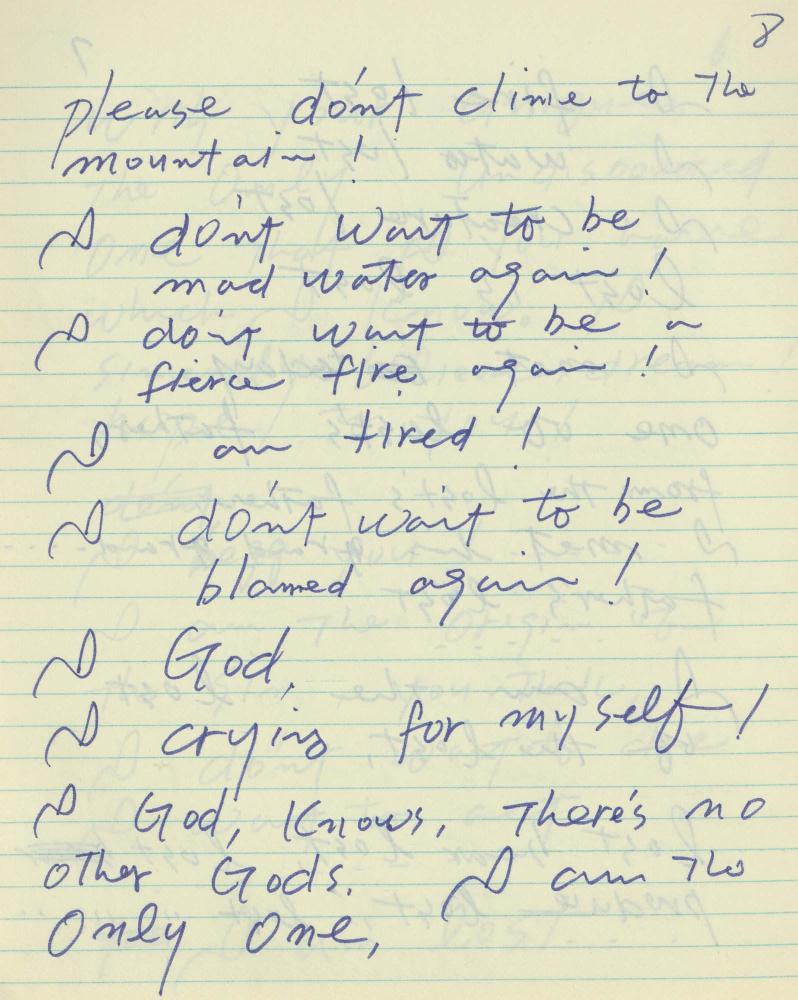 8
please don't clime to the
mountain!
I don't want to be
mad water again!
I don't want to be a
fierce fire again!
I am tired!
I don't want to be
blamed again!
I God,
I crying for myself!
I God, Knows, There's no
other Gods. I am the
Only One,